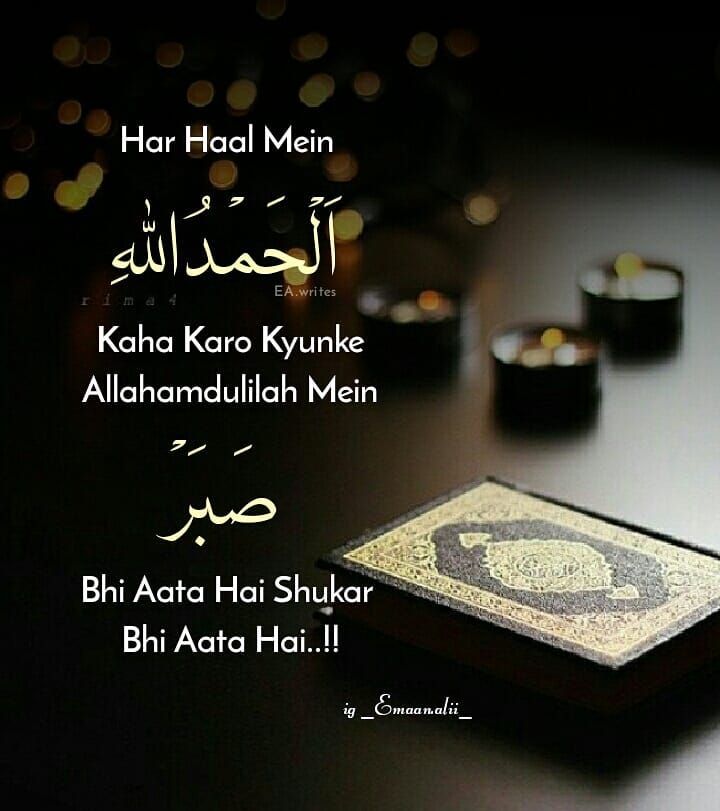 Har Haal Mein
اَلْحَمْدُاللهِ
EA.writes
rima4
Kaha Karo Kyunke
Allahamdulilah Mein
صَبَرْ
Bhi Aata Hai Shukar
Bhi Aata Hai..!!
ig _Emaan.alii_